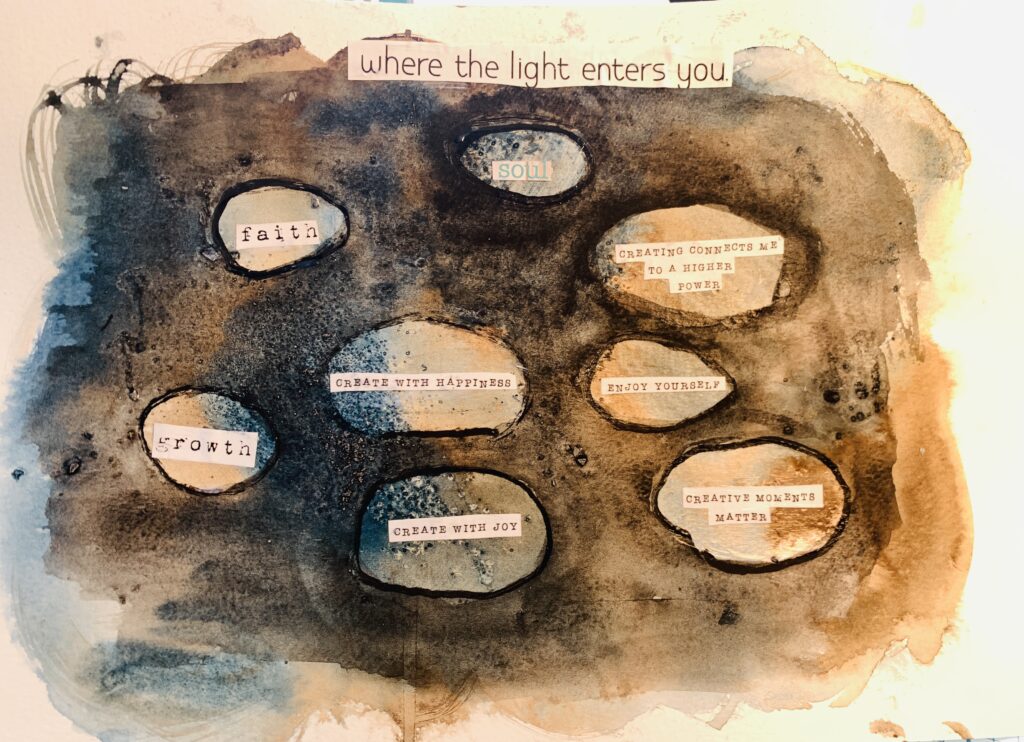 where the light enters you.
soul
faith
CREATING CONNECTS ME
TO A HIGHER
POWER
CREATE WITH HAPPINESS
ENJOY YOURSELF
growth
CREATIVE MOMENTS
MATTER
CREATE WITH JOY